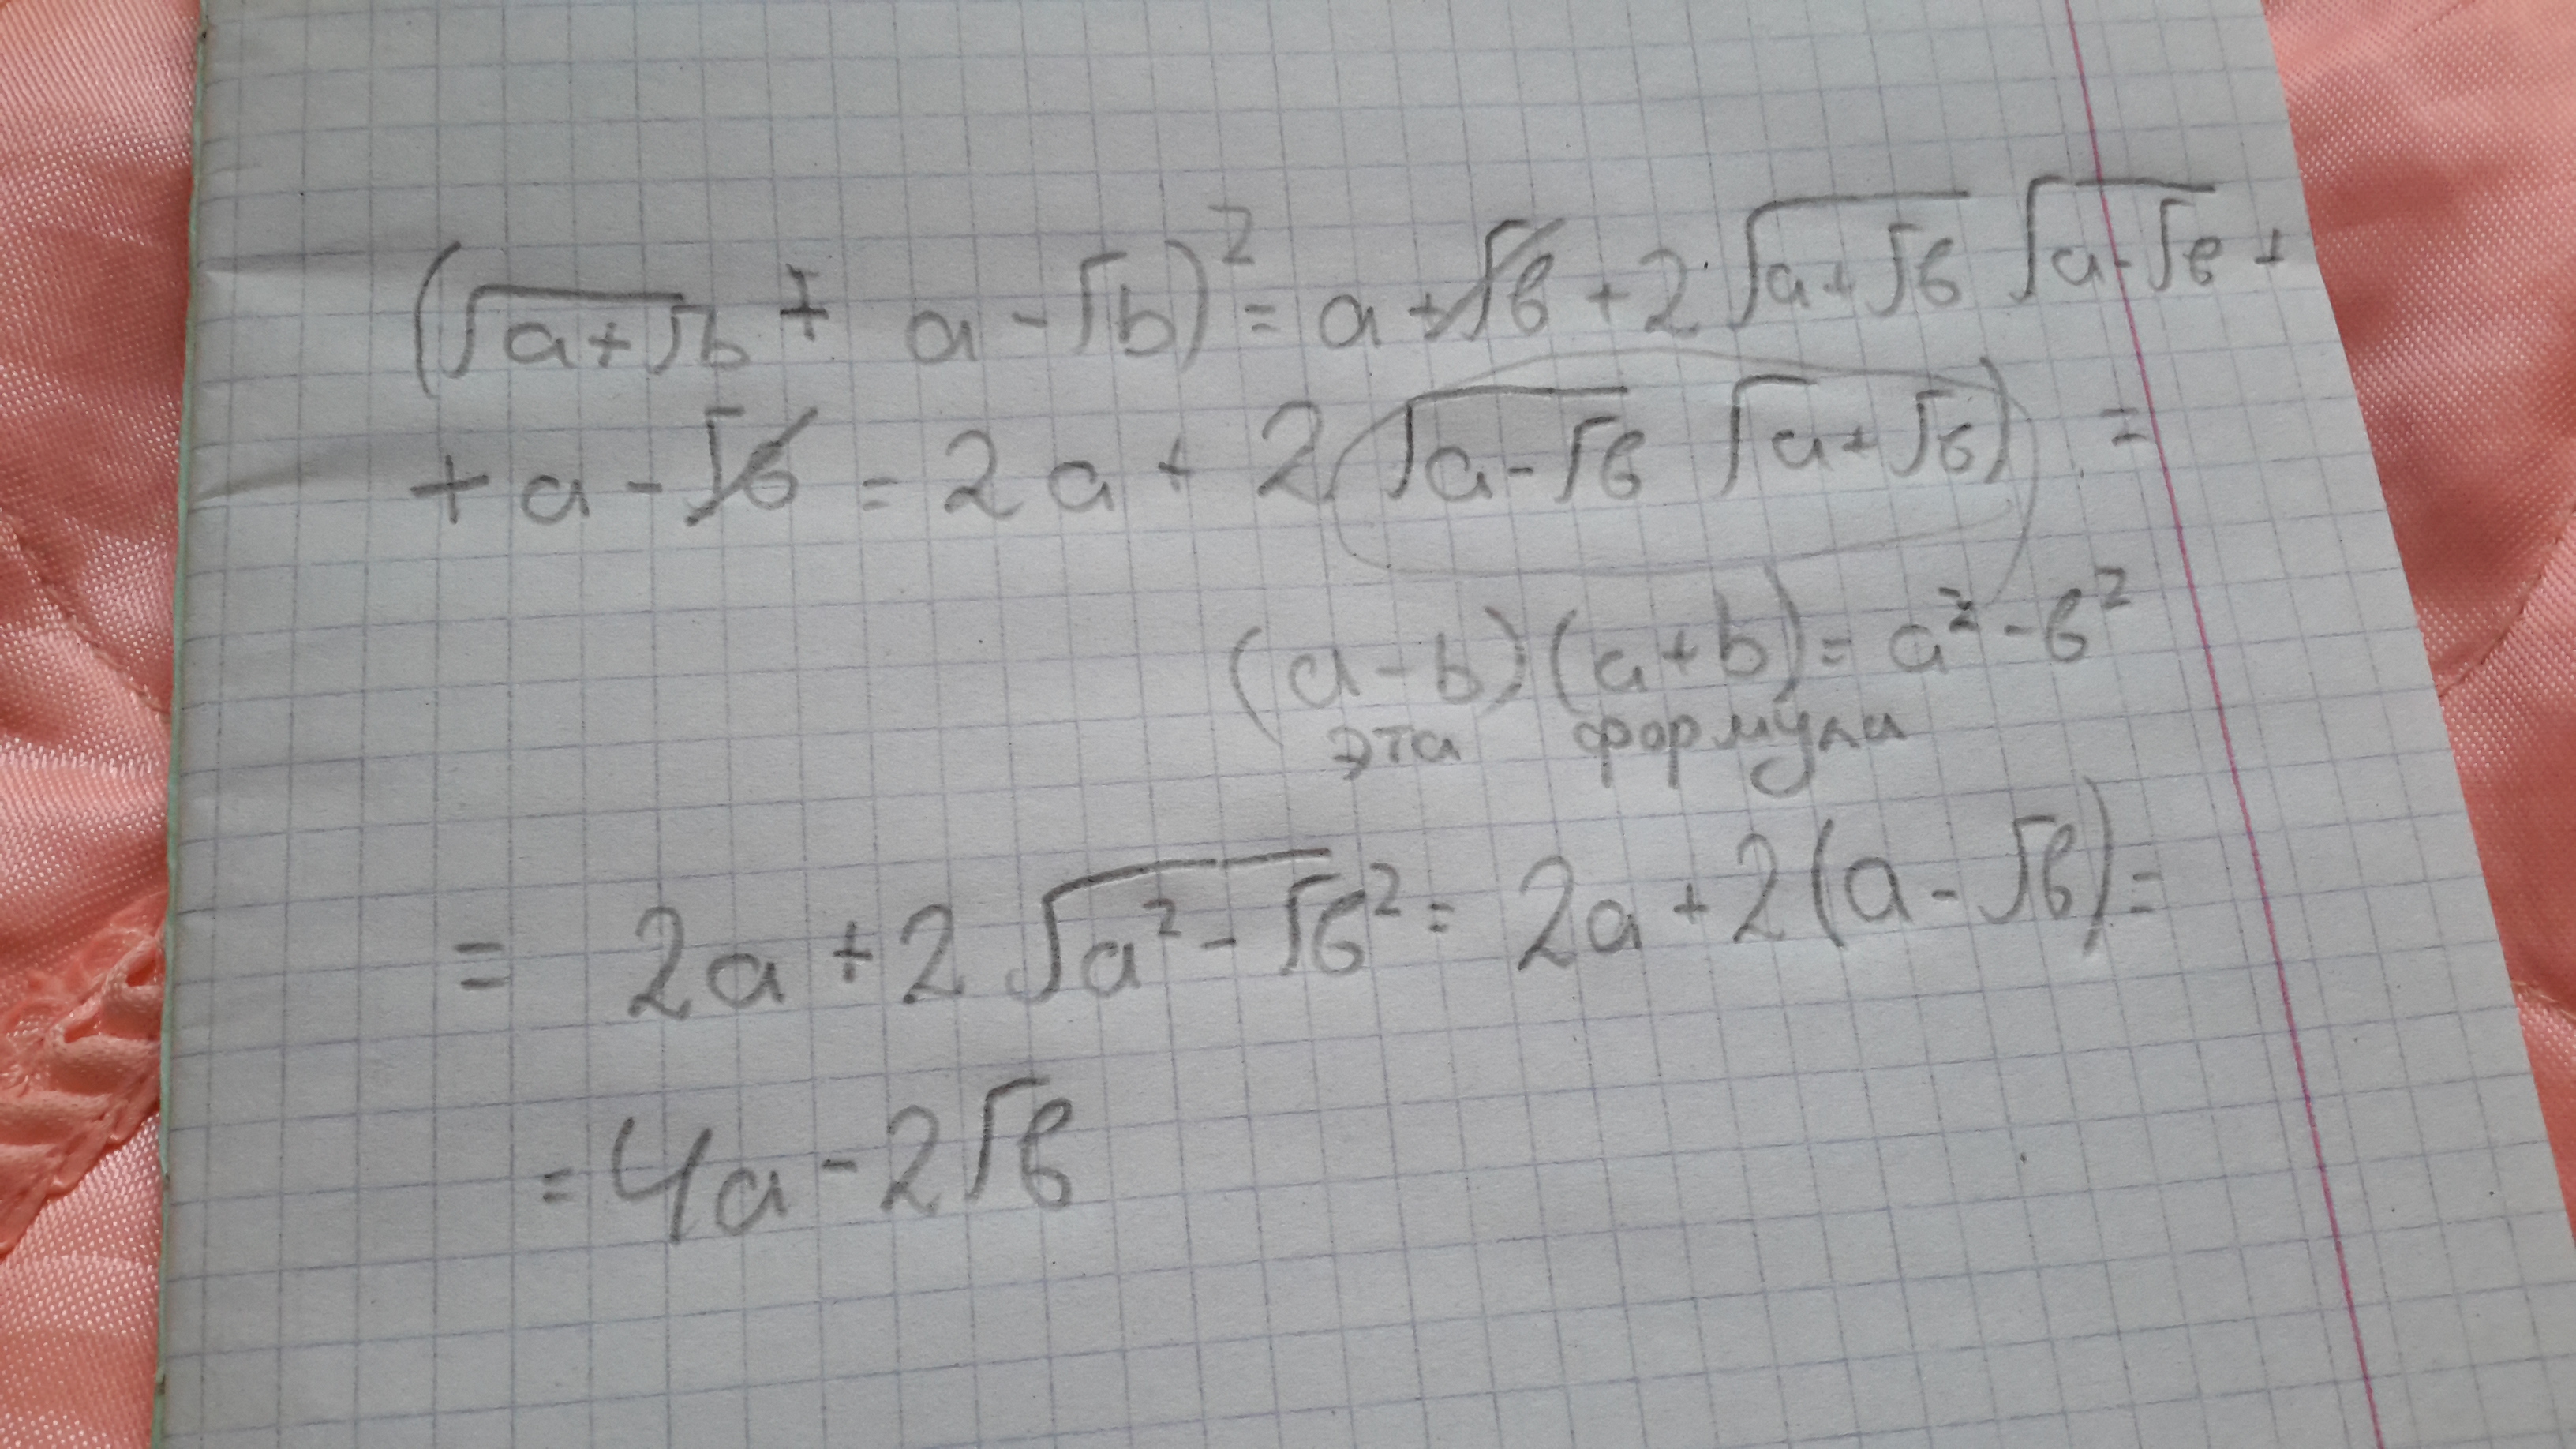 (√a+√b + a-√b)² = a+√в + 2·√a+√в √a-√в +
+ a-√в = 2a + 2(√a-√в √a+√в) =
(a-b)(a+b) = a²-в²
эта формула
= 2a + 2√a²-√в² = 2a + 2(a-√в) =
= 4a-2√в